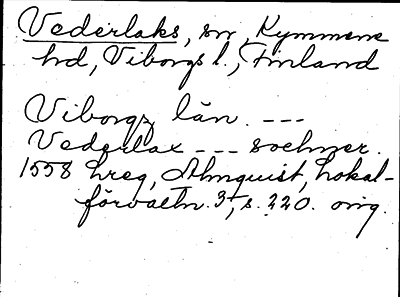 Vederlaks, sn, Kymmene
hd, Viborgs l., Finland
Viborgz län. ---
Vederlax --- sochner.
1558 hreg, Almquist, Lokal-
förvaltn. 3, s. 220. orig.